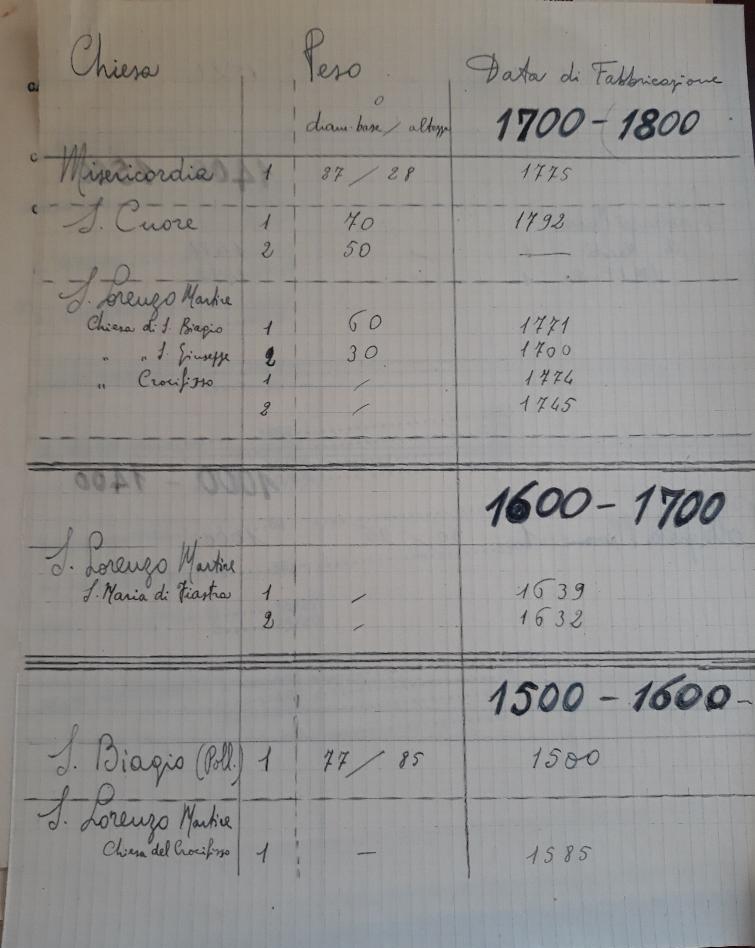 Chiesa Peso Data di Fabbricazione
o
diam. base / altezza 1700 - 1800
Misericordia 1 87 / 28 1775
S. Cuore 1 70 1792
2 50 —
S. Lorenzo Martire
Chiesa di S. Biagio 1 60 1771
" " S. Giuseppe 2 30 1700
" Crocifisso 1 / 1774
2 / 1745
1600 - 1700
S. Lorenzo Martire
S. Maria di Fiastra 1 / 1639
2 / 1632
1500 - 1600 -
S. Biagio (Poll.) 1 77 / 85 1500
S. Lorenzo Martire
Chiesa del Crocifisso 1 — 1585